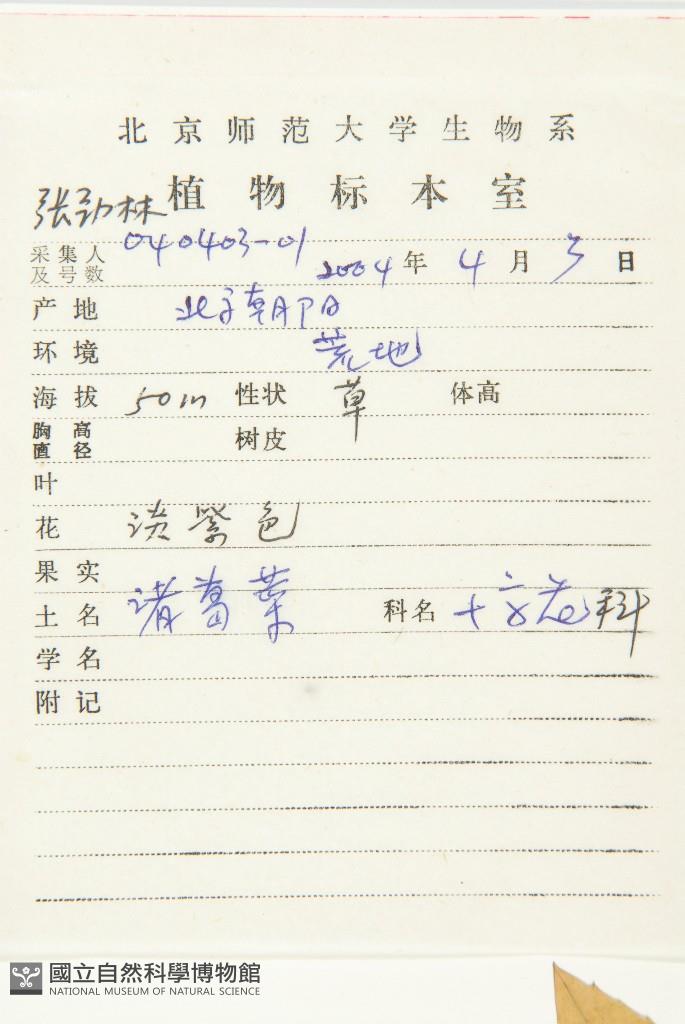 北京师范大学生物系
植物标本室
张劲林
采集人及号数 040403-01 2004年4月3日
产地 北京朝阳
环境 荒地
海拔 50m 性状 草 体高
胸高直径 树皮
叶
花 淡紫色
果实
土名 诸葛菜 科名 十字花科
学名
附记
國立自然科學博物館
NATIONAL MUSEUM OF NATURAL SCIENCE